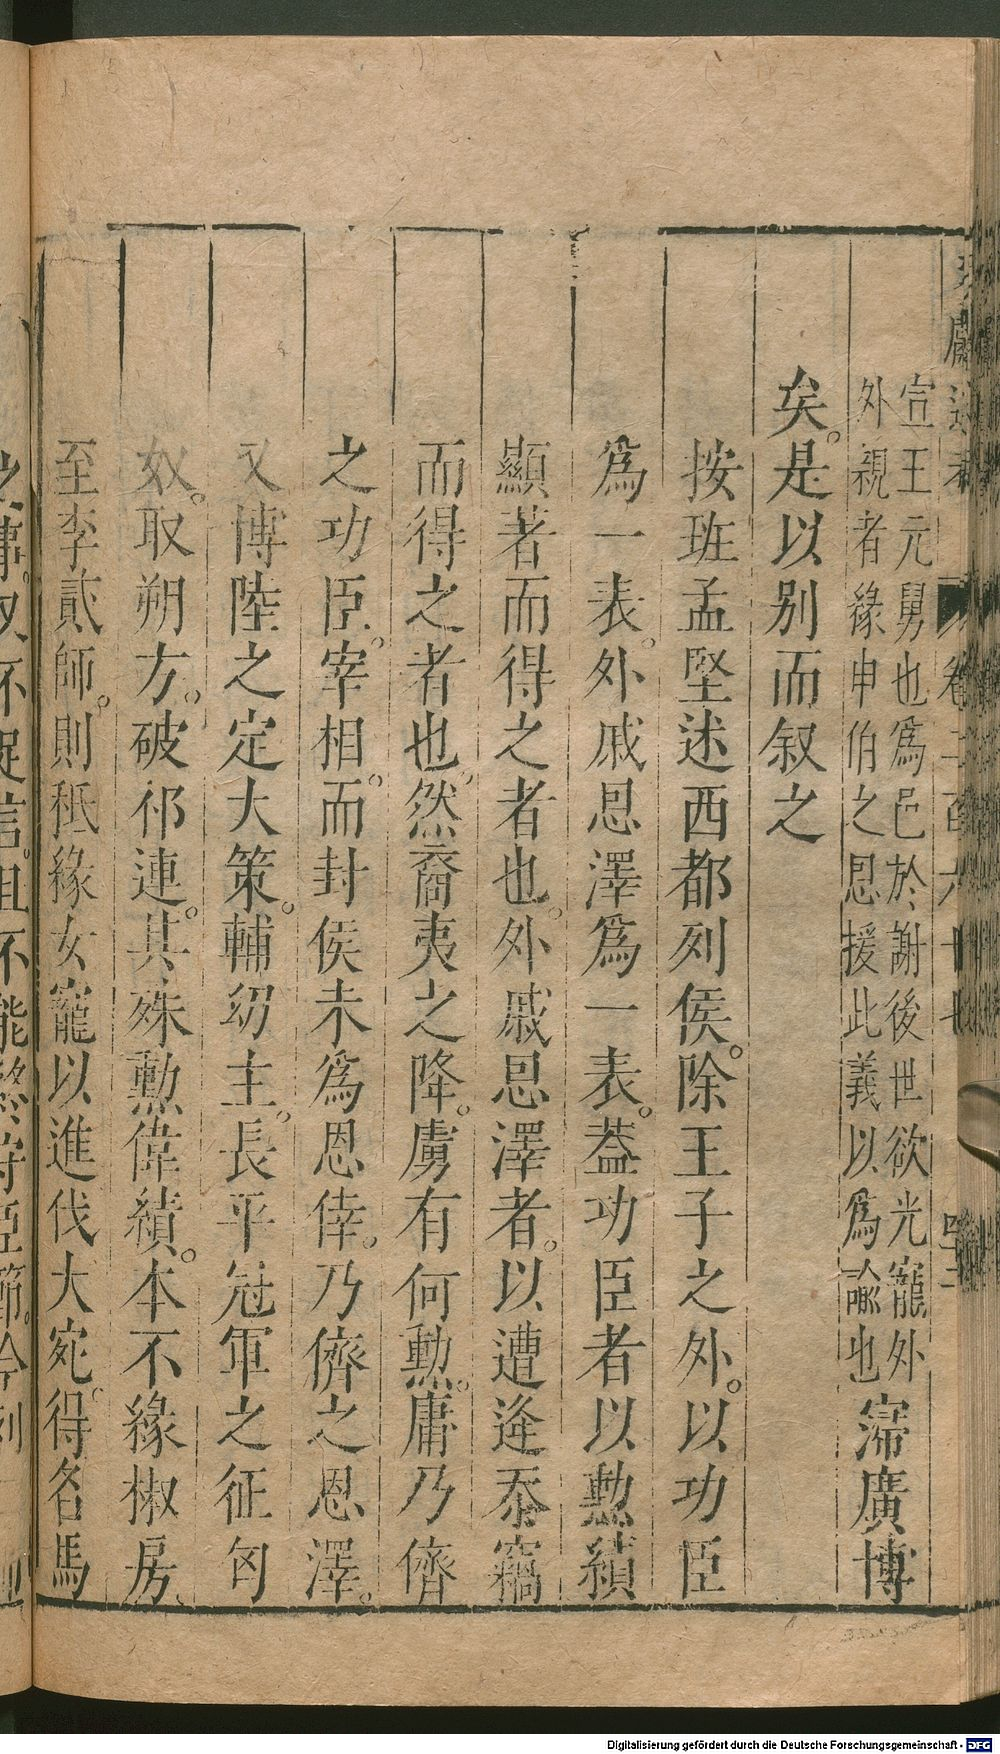 宣王元舅也爲邑於謝後世欲光寵外
外親者緣申伯之恩援此義以爲諭也
寖廣博
矣是以别而叙之
按班孟堅述西都列侯除王子之外以功臣
爲一表外戚恩澤爲一表葢功臣者以勲績
顯著而得之者也外戚恩澤者以遭逢忝竊
而得之者也然裔夷之降虜有何勲庸乃儕
之功臣宰相而封侯未爲恩倖乃儕之恩澤
又博陸之定大策輔幼主長平冠軍之征匈
奴取朔方破祁連其殊勲偉績本不緣椒房
至李貳師則秪緣女寵以進伐大宛得名馬
Digitalisierung gefördert durch die Deutsche Forschungsgemeinschaft - DFG